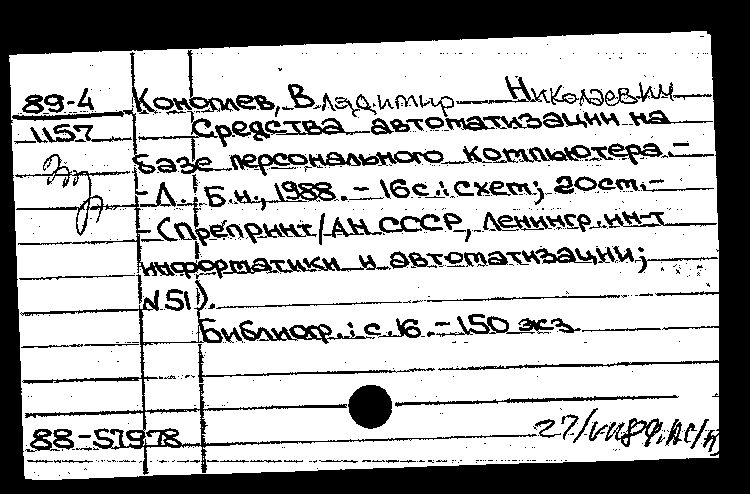 89-4 Коноплев, Владимир Николаевич
1157 Средства автоматизации на
базе персонального компьютера.-
-Л.: Б.и., 1988.- 16с.: схем; 20см.-
-(Препринт/АН СССР, Ленингр. ин-т
информатики и автоматизации;
N51).
Библиогр.: с.16.-150 экз.
88-57978